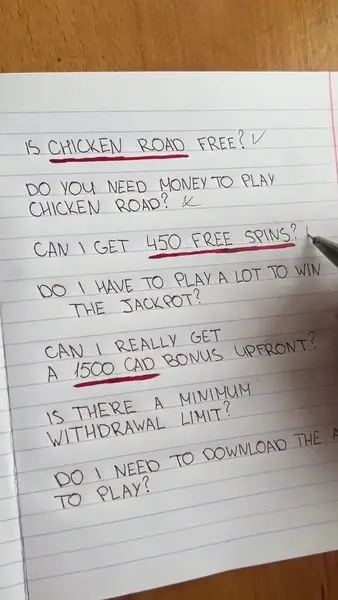 IS CHICKEN ROAD FREE? ✓
DO YOU NEED MONEY TO PLAY
CHICKEN ROAD? ×
CAN I GET 450 FREE SPINS?
DO I HAVE TO PLAY A LOT TO WIN
THE JACKPOT?
CAN I REALLY GET
A 1500 CAD BONUS UPFRONT?
IS THERE A MINIMUM
WITHDRAWAL LIMIT?
DO I NEED TO DOWNLOAD THE
TO PLAY?